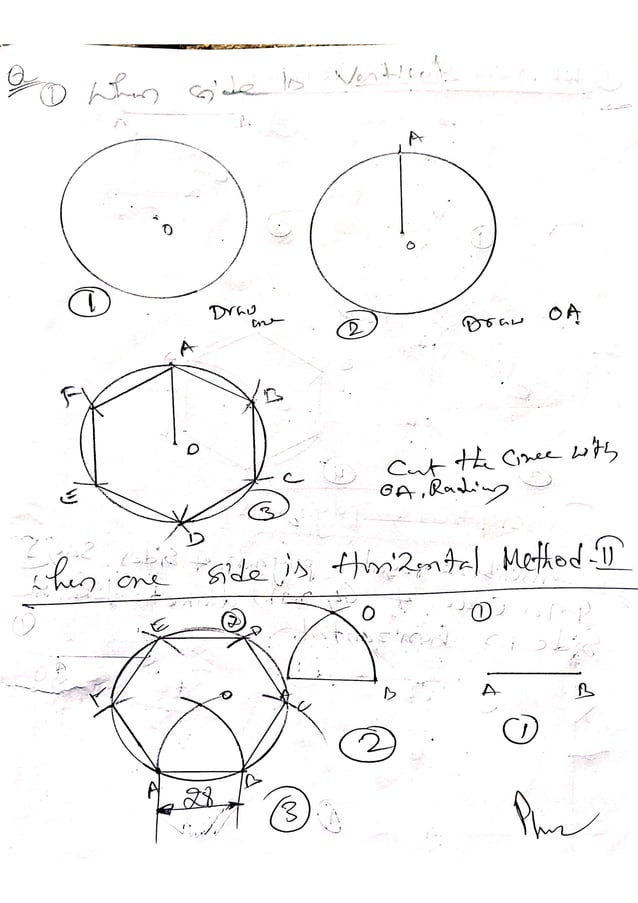 Q
① When side is Vertical
O
①
Draw one
A
O
②
Draw OA
A
B
C
D
E
F
O
③
Cut the Circle with
OA, Radius
When one side is Horizontal Method-II
①
A B
①
O
B
②
②
E D
F C
O
A B
28
③